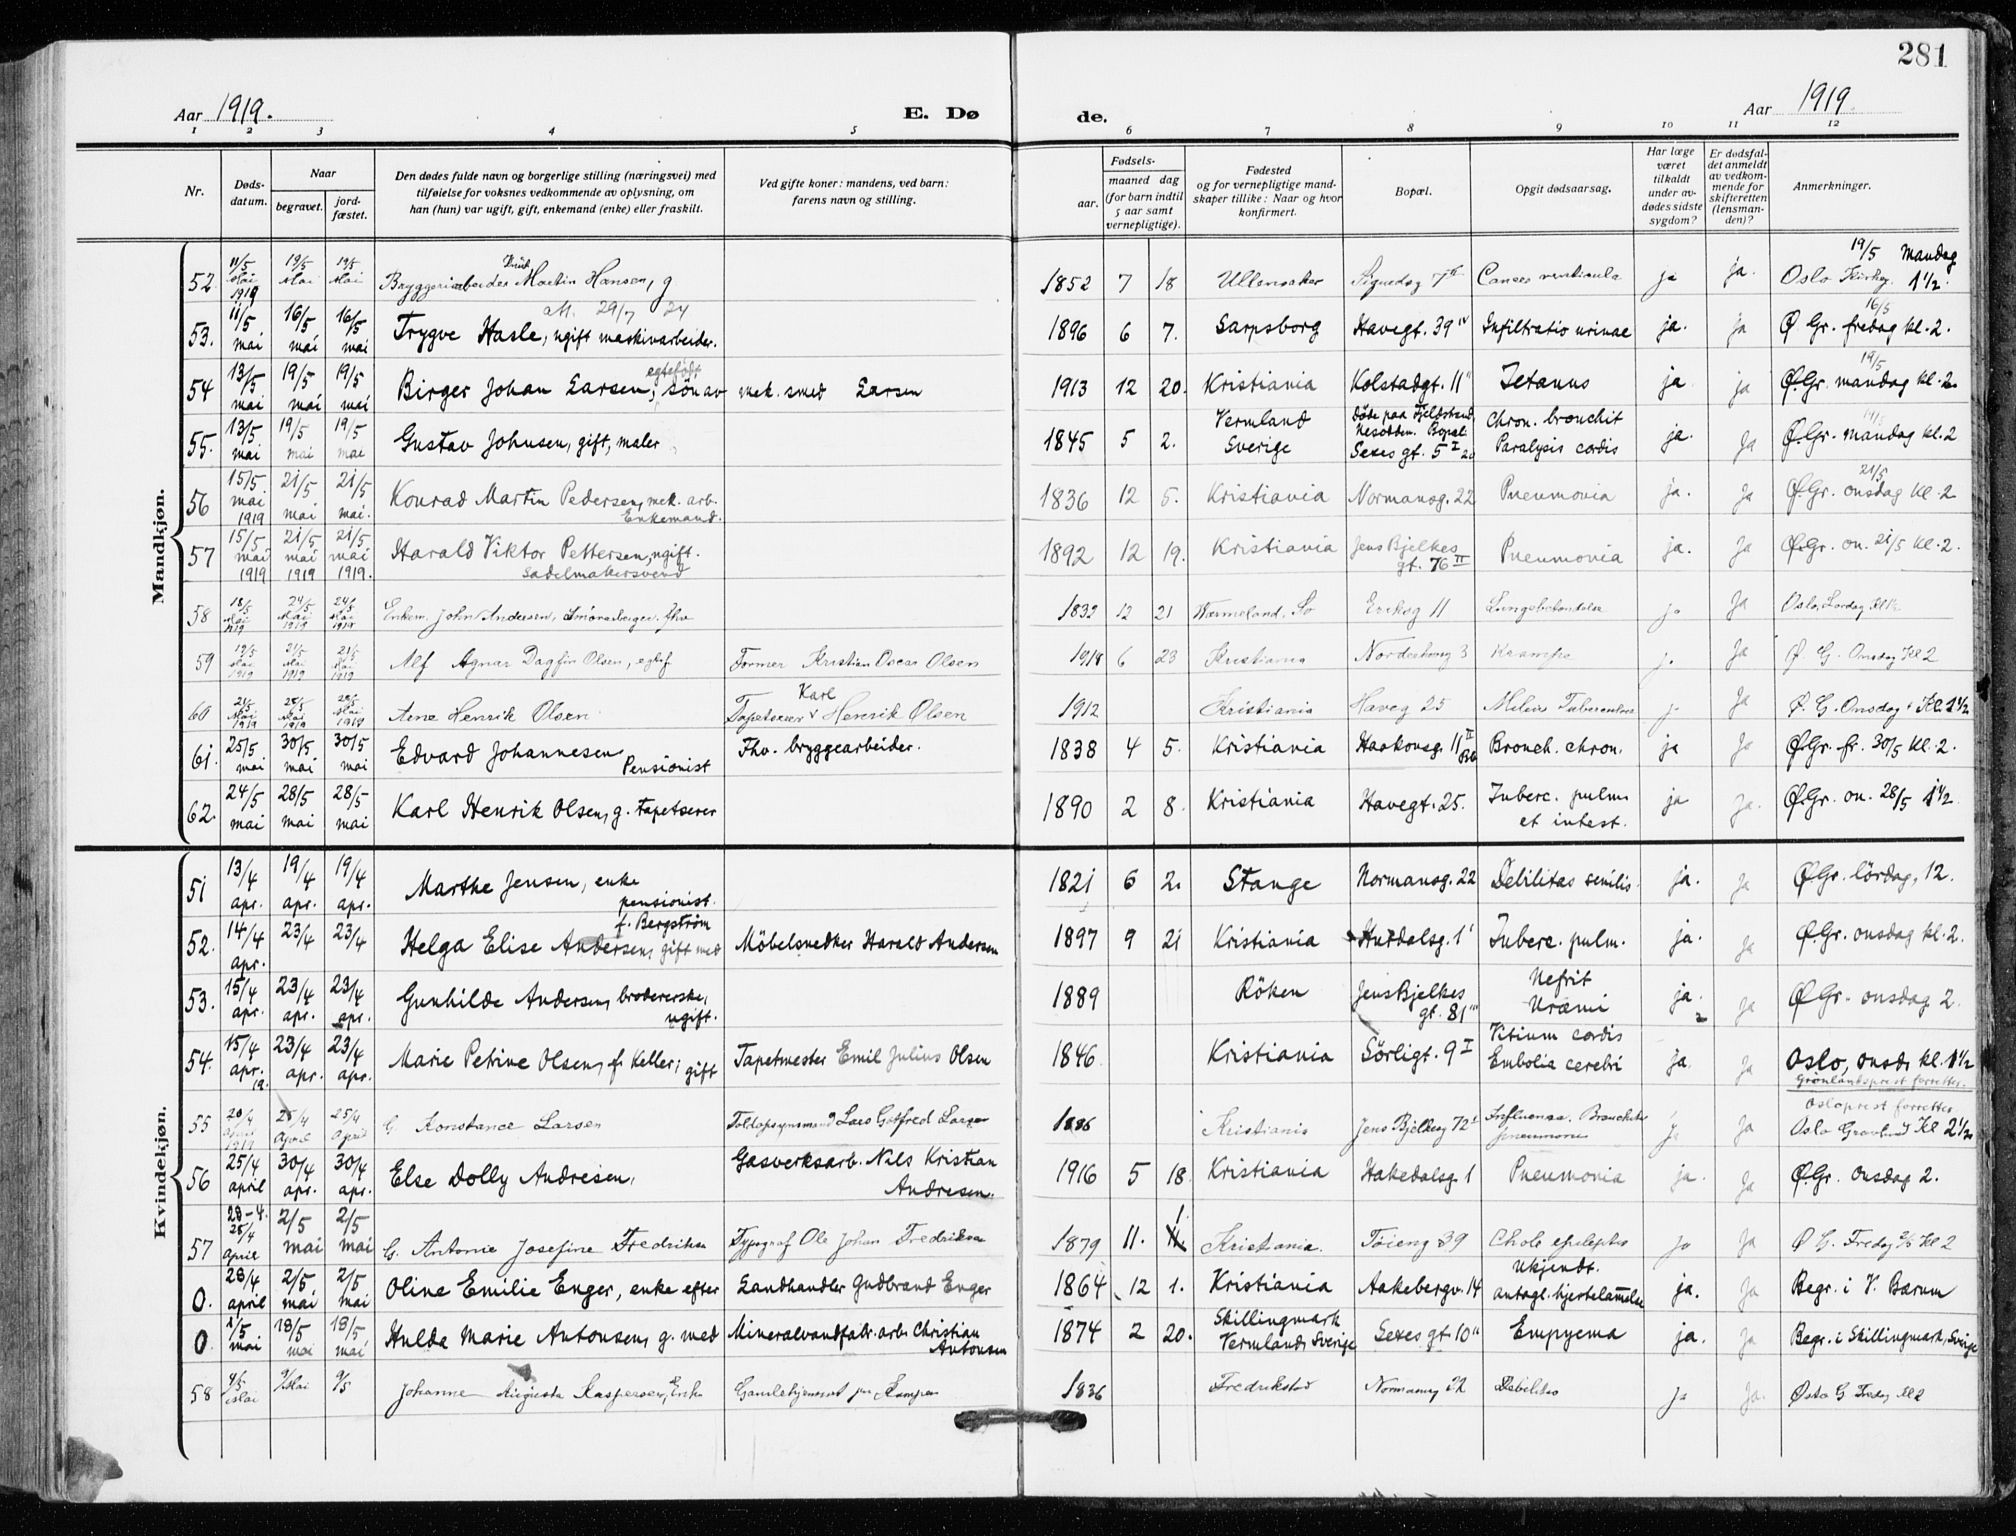 281
Aar 1919.
E. Dø
de.
Aar 1919.
1 2 3 4 5 6 7 8 9 10 11 12
Nr.
Dødsdatum.
Naar
begravet.
jordfæstet.
Den dødes fulde navn og borgerlige stilling (næringsvei) med
tilføielse for voksnes vedkommende av oplysning, om
han (hun) var ugift, gift, enkemand (enke) eller fraskilt.
Ved gifte koner: mandens, ved barn:
farens navn og stilling.
Fødsels-
aar.
maaned dag
(for barn indtil
5 aar samt
vernepligtige).
Fødested
og for vernepligtige mand-
skaper tillike: Naar og hvor
konfirmert.
Bopæl.
Opgit dødsaarsag.
Har læge
været
tilkaldt
under av-
dødes sidste
sygdom?
Er dødsfal-
det anmeldt
av vedkom-
mende for
skifteretten
(lensman-
den)?
Anmerkninger.
Mandkjøn.
52. 11/5 Mai 1919 19/5 Mai 19/5 Mai Bryggeriarbeider Martin Hansen, g 1852 7 18 Ullensaker Cancer ventricula ja ja. 19/5 mandag Oslo 1 1/2.
53. 11/5. mai 16/5 mai 16/5 mai Trygve Hasle, ugift maskinarbeider. 29/7 24 1896 6 7. Sarpsborg Havegt. 39 IV Infiltratio urinae ja. ja 16/5 Ø Gr. fredag kl. 2.
54 13/5 mai 19/5 mai 19/5 mai Birger Johan Larsen, egtefødt søn av mek. smed Larsen 1913 12 20. Kristiania Kolstadgt. 11 II Tetanus ja. ja 19/5 Ø.Gr. mandag kl. 2.
55. 13/5 mai 19/5 mai 19/5 mai Gustav Johnsen, gift, maler 1845 5 2. Vermland Sverige Døde paa Fjeldstrand, Nesodden. Bopæl Sexes gt. 5 I Chron. bronchit Paralysis cordis ja. Ja Ø.Gr. mandag kl. 2
56 15/5 mai 1919 21/5 mai 21/5 mai. Konrad Martin Pedersen, mek. arb. Enkemand. 1836 12 5. Kristiania Normansg. 22 Pneumonia ja. Ja 21/5 Ø.Gr. onsdag kl. 2
57 15/5 mai 1919 21/5 mai 1919 21/5 mai 1919. Harald Viktor Pettersen, ugift. Sadelmakersvend 1892 12 19. Kristiania Jens Bjelkes gt. 76 II Pneumonia ja. Ja Ø.Gr. on. 21/5 kl. 2.
58 18/5 Mai 1919 24/5 Mai 1919 24/5 Mai 1919 Enkem. John Andersen, 1832 12 21 Wærmeland. Eriksg 11 Lungebetændelse ja Ja Oslo, Lørdag Kl 1 1/2
59 19/5 Mai 1919 21/5 Mai 1919 21/5 Mai 1919 Alf Agnar Dagfin Olsen, Former Kristian Oscar Olsen 1918 6 23 Kristiania 3 Krampe ja Ja Ø. G. Onsdag Kl 2
60 21/5 Mai 1919 28/5 Mai 1919 28/5 Mai 1919 Arne Henrik Olsen Tapetserer Karl Henrik Olsen 1912 Kristiania Haveg 25 Tuberculose Ja Ø. G. Onsdag Kl. 1 1/2
61. 25/5 mai 30/5 mai 30/5 mai Edvard Johannesen Pensionist Fhv. bryggearbeider. 1838 4 5. Kristiania Haakonsg. 11 II Bronch. chron. ja Ja Ø.Gr. fr. 30/5 kl. 2.
62. 24/5 mai 28/5 mai 28/5 mai Karl Henrik Olsen, g. tapetserer 1890 2 8. Kristiania Havegt. 25. Tuberc. pulm et intest. ja Ja. Ø.Gr. on. 28/5 1 1/2
Kvindekjøn.
51 13/4 apr. 19/4 apr. 19/4 apr. Marthe Jensen, enke pensionist. 1821 6 2. Stange Normansg. 22 Debilitas senilis. ja. Ja Ø.Gr. lördag, 12.
52. 14/4 apr. 23/4 23/4 Helga Elise Andersen, f. Bergström gift med Möbelsnedker Harald Andersen 1897 9 21 Kristiania Hurdalsg. 1 I Tuberc. pulm. ja. Ja Ø.Gr. onsdag kl. 2.
53. 15/4 apr. 23/4 apr. 23/4 apr. Gunhilde Andersen, brodererske, ugift. 1889 Röken Jens Bjelkes gt. 81 III Nefrit Uræmi ja. Ja Ø.Gr. onsdag 2.
54. 15/4 apr. 19. 23/4 apr. 23/4 apr. Marie Petrine Olsen, f. Keller, gift Tapetmester Emil Julius Olsen 1846. Kristiania Sörligt. 9 I Vitium cordis Embolia cerebri ja. Ja Oslo, onsd. kl. 1 1/2 Grønlandsprest forretter.
55 20/4 April 1919 25/4 April 25/4 April G. Konstance Larsen Toldopsynsmand Lars Gotfred Larsen 1886 Kristiania Jens Bjelkesg 72 I Influensa. pneumoni ja Ja Osloprest forretter Oslo Gravlund Kl 2 1/2
56 25/4 april 30/4 apr. 30/4 apr. Else Dolly Andresen, Gasverksarb. Nils Kristian Andresen. 1916 5 18. Kristiania Hakedalsg. 1 Pneumonia ja. Ja Ø.Gr. onsdag 2.
57 28-4. 28/4 April 2/5 mai 2/5 mai G. Antonie Josefine Fredriksen Typograf Ole Johan Fredriksen 1879 11. 1. Kristiania. Töieng 39 ja Ja Ø G. Fredag 2/5 Kl 2
0. 28/4 april 2/5 mai 2/5 mai Oline Emilie Enger, enke efter Landhandler Gudbrand Enger 1864 12 1. Kristiania Aakebergv. 14 Ukjendt. antagl. hjertelammelse ja. Ja Begr. i V. Bærum
0 1/5 mai 18/5 mai 18/5 mai Hulda Marie Antonsen, g. med Mineralvandfabr. arb. Christian Antonsen 1874 2 20. Skillingmark Vermland, Sverige Sexes gt. 10 II Empyema ja. Ja Begr. i Skillingmark, Sverige
58 4/5 Mai 9/ Mai 9/5 Johanne Augusta Kaspersen, Enke Gamlehjemmet paa Kampen 1836 Fredrikstad Normansg 22 Debilitas ja Ja. Østo G Fredag Kl 2